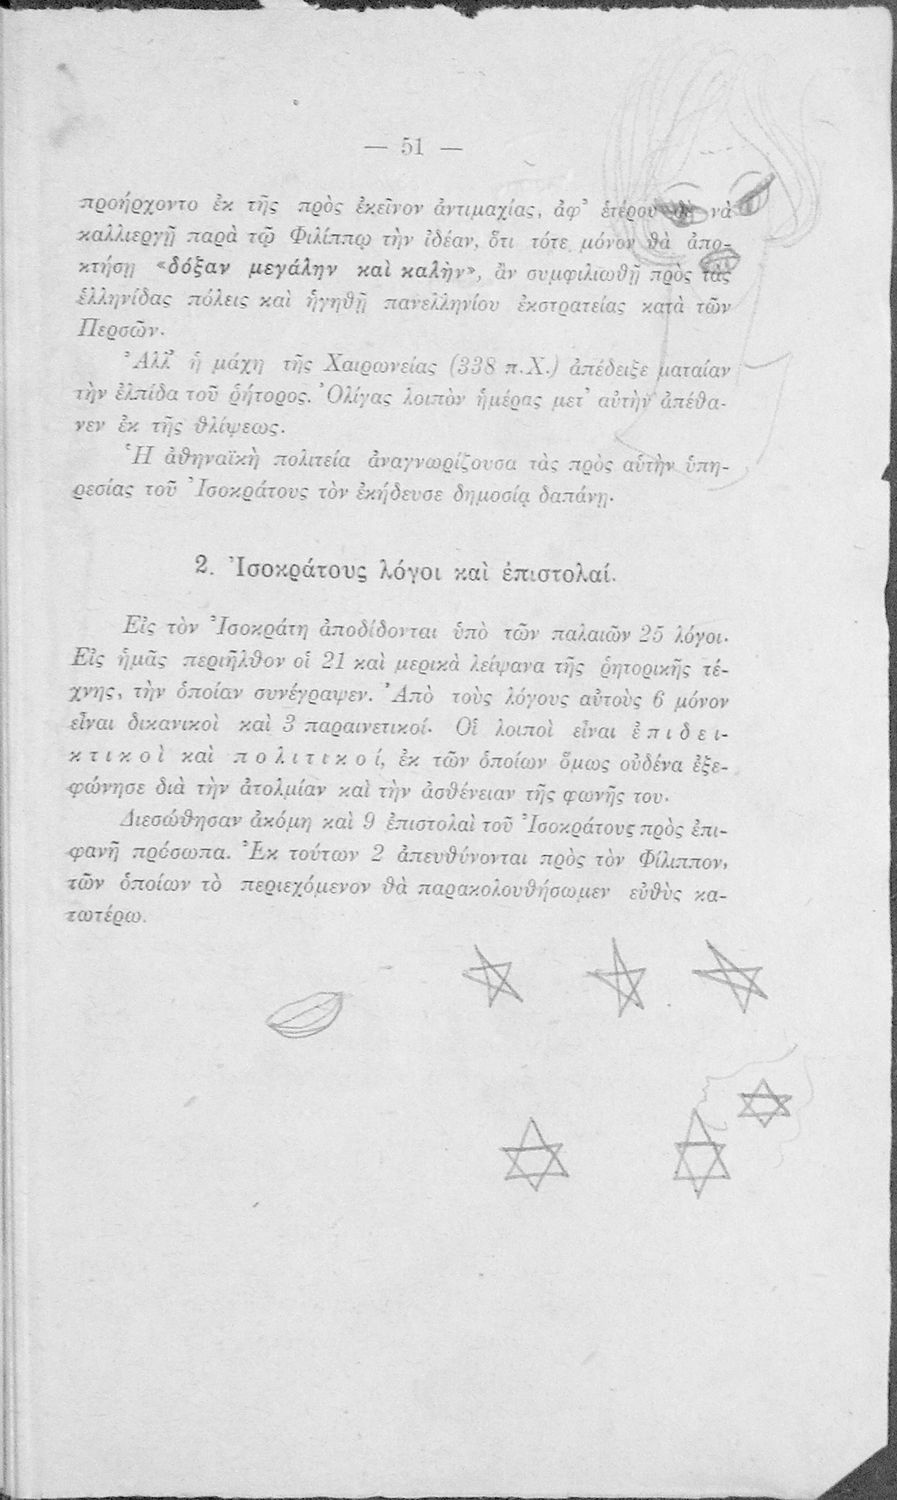 — 51 —
προήρχοντο ἐκ τῆς πρὸς ἐκεῖνον ἀντιμαχίας, ἀφ’ ἑτέρου νὰ
καλλιεργῇ παρὰ τῷ Φιλίππῳ τὴν ἰδέαν, ὅτι τότε μόνον θὰ ἀπο-
κτήσῃ «δόξαν μεγάλην καὶ καλὴν», ἂν συμφιλιωθῇ πρὸς τὰς
ἑλληνίδας πόλεις καὶ ἡγηθῇ πανελληνίου ἐκστρατείας κατὰ τῶν
Περσῶν.
Ἀλλ’ ἡ μάχη τῆς Χαιρωνείας (338 π.Χ.) ἀπέδειξε ματαίαν
τὴν ἐλπίδα τοῦ ῥήτορος. Ὀλίγας λοιπὸν ἡμέρας μετ’ αὐτὴν ἀπέθα-
νεν ἐκ τῆς θλίψεως.
Ἡ ἀθηναϊκὴ πολιτεία ἀναγνωρίζουσα τὰς πρὸς αὐτὴν ὑπη-
ρεσίας τοῦ Ἰσοκράτους τὸν ἐκήδευσε δημοσίᾳ δαπάνῃ.
2. Ἰσοκράτους λόγοι καὶ ἐπιστολαί.
Εἰς τὸν Ἰσοκράτη ἀποδίδονται ὑπὸ τῶν παλαιῶν 25 λόγοι.
Εἰς ἡμᾶς περιῆλθον οἱ 21 καὶ μερικὰ λείψανα τῆς ῥητορικῆς τέ-
χνης, τὴν ὁποίαν συνέγραψεν. Ἀπὸ τοὺς λόγους αὐτοὺς 6 μόνον
εἶναι δικανικοὶ καὶ 3 παραινετικοί. Οἱ λοιποὶ εἶναι ἐπιδει-
κτικοὶ καὶ πολιτικοί, ἐκ τῶν ὁποίων ὅμως οὐδένα ἐξε-
φώνησε διὰ τὴν ἀτολμίαν καὶ τὴν ἀσθένειαν τῆς φωνῆς του.
Διεσώθησαν ἀκόμη καὶ 9 ἐπιστολαὶ τοῦ Ἰσοκράτους πρὸς ἐπι-
φανῆ πρόσωπα. Ἐκ τούτων 2 ἀπευθύνονται πρὸς τὸν Φίλιππον,
τῶν ὁποίων τὸ περιεχόμενον θὰ παρακολουθήσωμεν εὐθὺς κα-
τωτέρω.